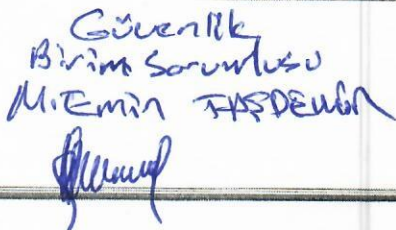 Güvenlik
Birim Sorumlusu
M.Emin TAŞDEMİR